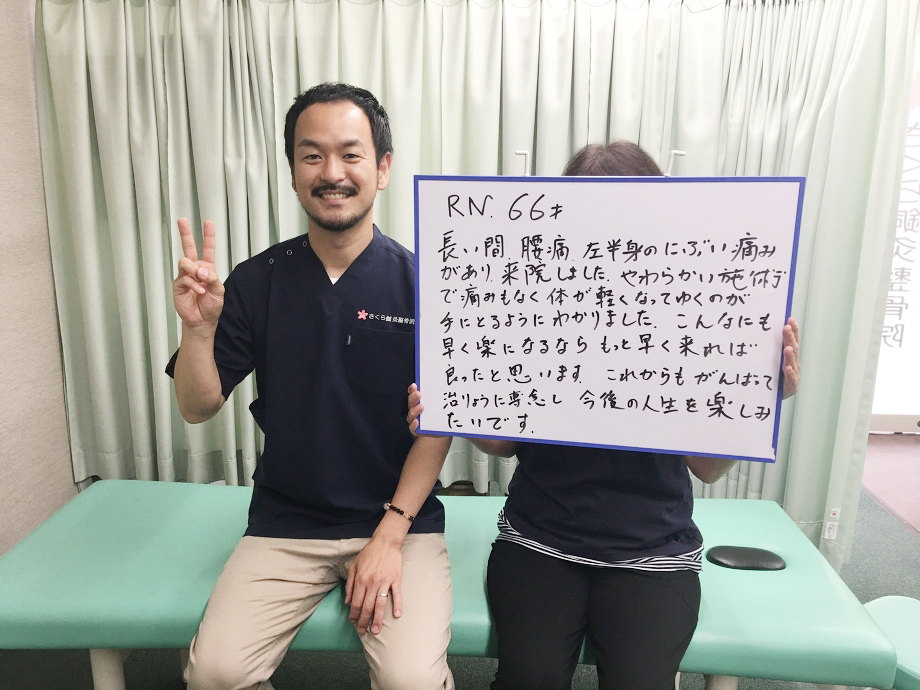 RN. 66才
長い間 腰痛、左半身のにぶい痛み
があり、来院しました。やわらかい施術
で痛みもなく体が軽くなってゆくのが
手にとるようにわかりました。こんなにも
早く楽になるなら もっと早く来れば
良ったと思います。これからも がんばって
治りょうに専念し 今後の人生を楽しみ
たいです。
さくら鍼灸整骨院